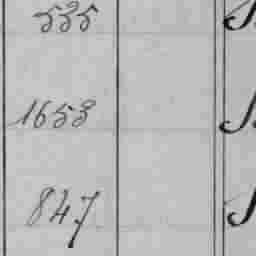 535
1653
847